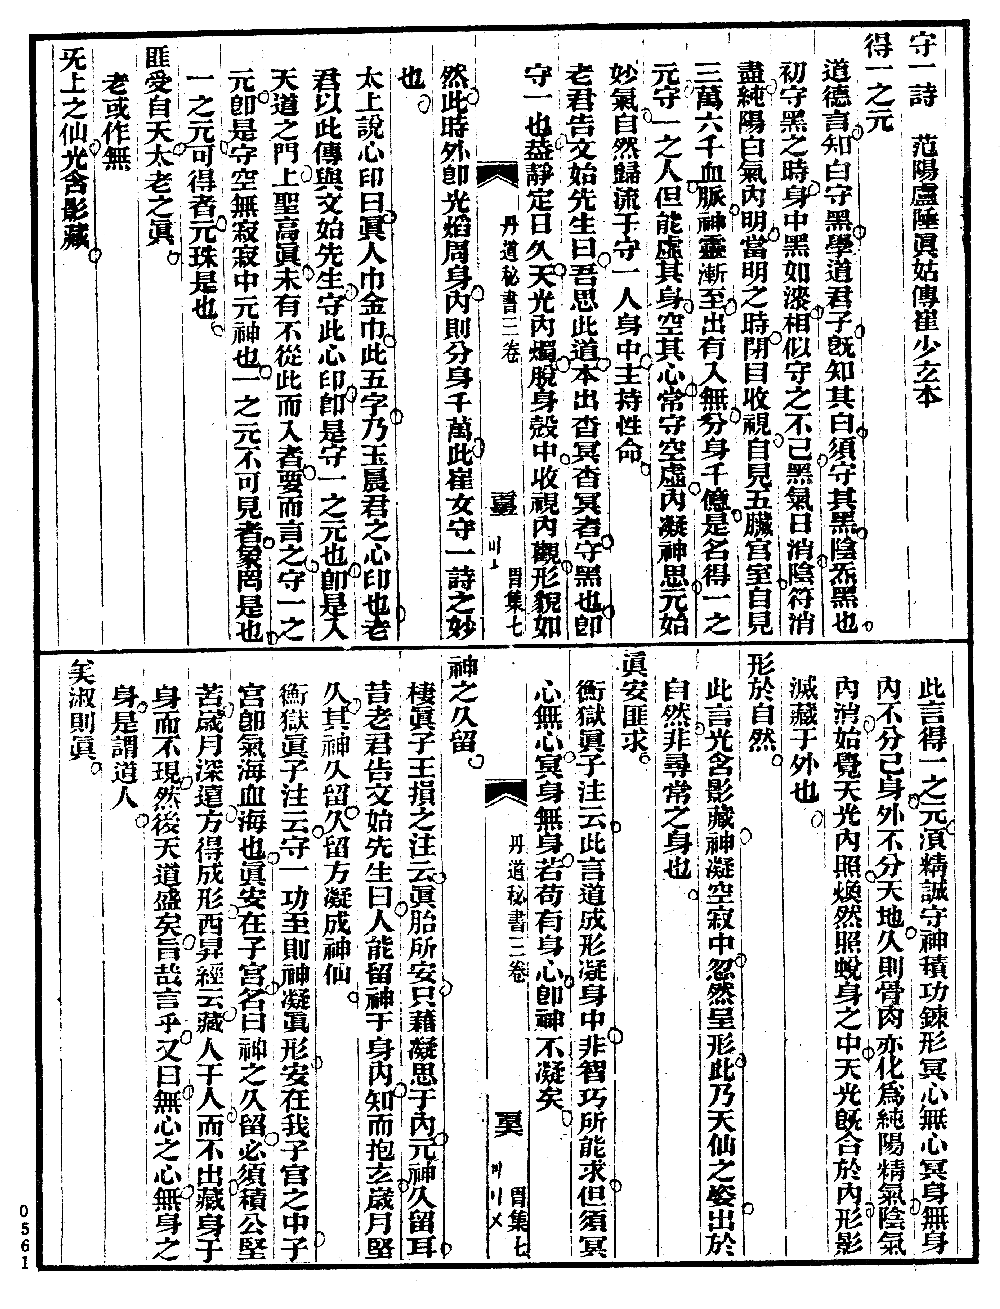 守一詩　范陽盧陲眞姑傳崔少玄本
得一之元
道德言知白守黑學道君子旣知其白須守其黑陰炁黑也
初守黑之時身中黑如漆相似守之不已黑氣日消陰符消
盡純陽白氣內明當明之時閉目收視自見五臟宮室自見
三萬六千血脈神靈漸至出有入無分身千億是名得一之
元守一之人但能虛其身空其心常守空虛內凝神思元始
妙氣自然歸流于守一人身中主持性命
老君告文始先生曰吾思此道本出杳冥杳冥者守黑也卽
守一也益靜定日久天光內燭脫身殼中收視內觀形貌如
丹道秘書三卷
胃集七
然此時外卽光焰周身內則分身千萬此崔女守一詩之妙
也
太上說心印曰眞人巾金巾此五字乃玉晨君之心印也老
君以此傳與文始先生守此心印卽是守一之元也卽是入
天道之門上聖高眞未有不從此而入者要而言之守一之
元卽是守空無寂寂中元神也一之元不可見者象罔是也
一之元可得者元珠是也
匪受自天太老之眞
老或作無
旡上之仙光含影藏
此言得一之元湏精誠守神積功鍊形冥心無心冥身無身
內不分己身外不分天地久則骨肉亦化爲純陽精氣陰氣
內消始覺天光內照煥然照蛻身之中天光旣合於內形影
減藏于外也
形於自然
此言光含影藏神凝空寂中忽然呈形此乃天仙之姿出於
自然非尋常之身也
眞安匪求
衡獄眞子注云此言道成形凝身中非智巧所能求但須冥
心無心冥身無身若苟有身心卽神不凝矣
丹道秘書三卷
胃集七
神之久留
棲眞子王損之注云眞胎所安只藉凝思于內元神久留耳
昔老君告文始先生曰人能留神于身內知而抱玄歲月堅
久其神久留久留方凝成神仙
衡獄眞子注云守一功至則神凝眞形安在我子宮之中子
宮卽氣海血海也眞安在子宮名曰神之久留必須積公堅
苦歲月深遠方得成形西昇經云藏人于人而不出藏身于
身而不現然後天道盛矣旨哉言乎又曰無心之心無身之
身是謂道人
矣淑則眞
0561